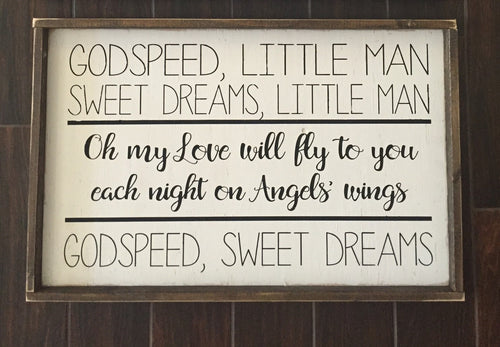 GODSPEED, LITTLE MAN
SWEET DREAMS, LITTLE MAN
Oh my Love will fly to you
each night on Angels' wings
GODSPEED, SWEET DREAMS